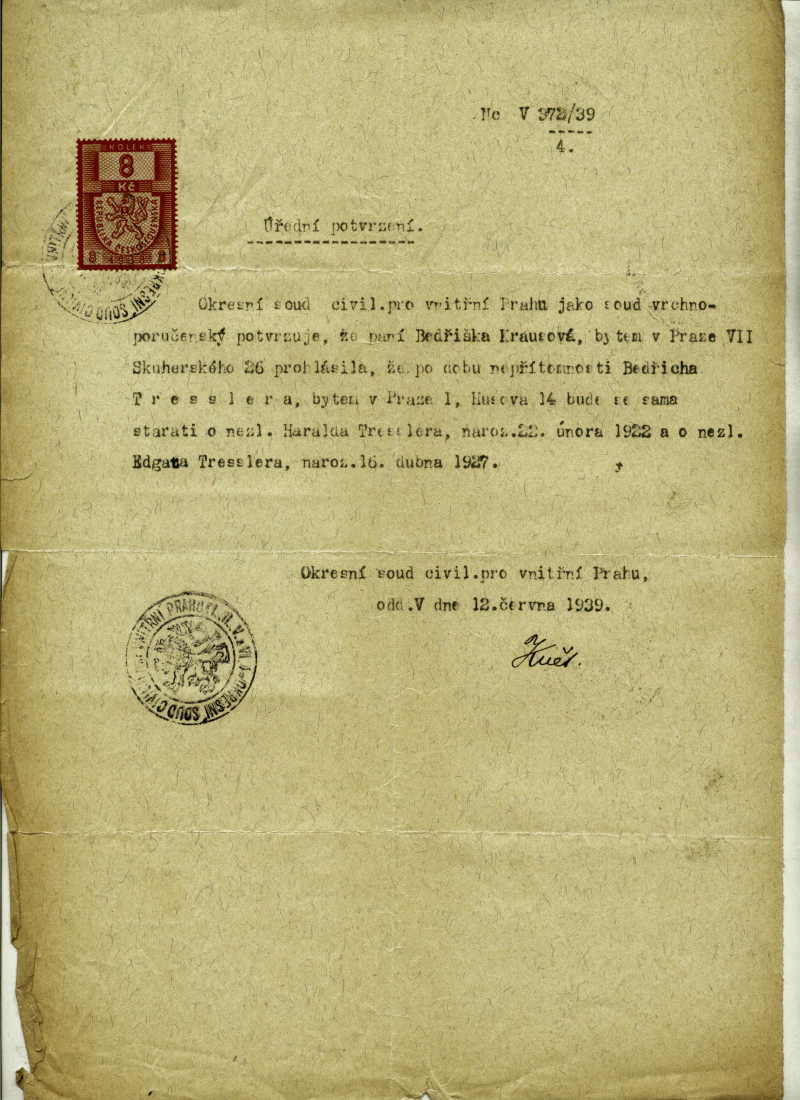 Nc V 372/39
4.
KOLEK
8
Kč
REPUBLIKA ČESKOSLOVENSKÁ
8 8
OKRESNÍ SOUD CIVIL
Úřední potvrzení.
Okresní soud civil.pro vnitřní Prahu jako soud vrchno-
poručenský potvrzuje, že paní Bedřiška Krausová, bytem v Praze VII
Skuherského 26 prohlásila, že po dobu nepřítomnosti Bedřicha
T r e s s l e r a, bytem v Praze I, Husova 14 bude se sama
starati o nezl. Haralda Tresslera, naroz.22. února 1922 a o nezl.
Edgara Tresslera, naroz.16. dubna 1927.
Okresní soud civil.pro vnitřní Prahu,
odd.V dne 12.června 1939.
OKRESNÍ SOUD CIVIL. PRO VNITŘNÍ PRAHU